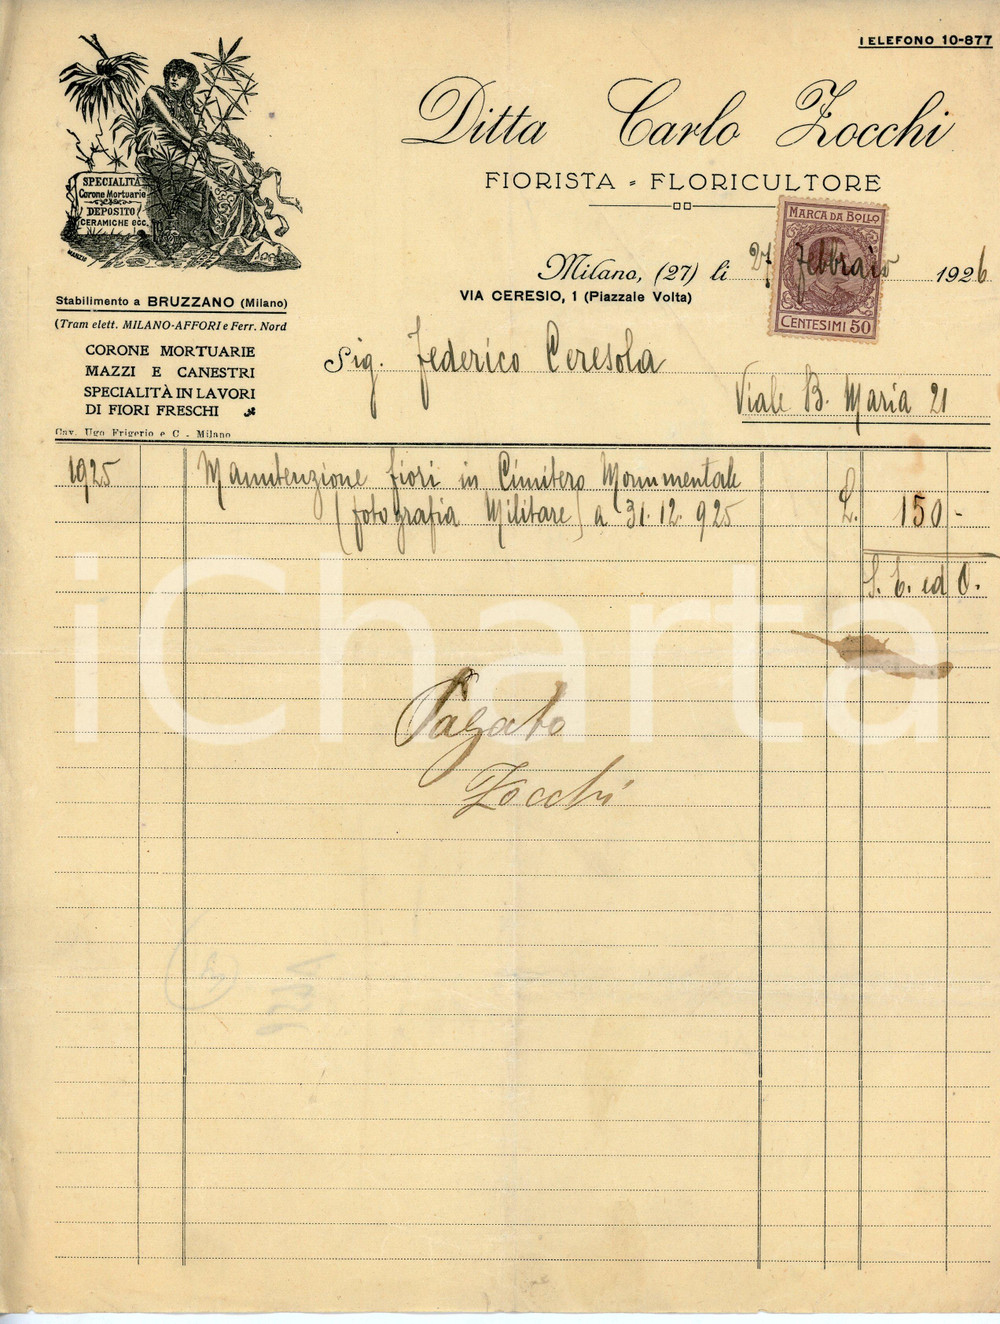 TELEFONO 10-877
Ditta Carlo Zocchi
FIORISTA - FLORICULTORE
SPECIALITÀ
Corone Mortuarie
DEPOSITO
CERAMICHE ecc.
MARZIO
MARCA DA BOLLO
CENTESIMI 50
Milano, (27) li 27 febbraio 1926
VIA CERESIO, 1 (Piazzale Volta)
Stabilimento a BRUZZANO (Milano)
(Tram elett. MILANO-AFFORI e Ferr. Nord
CORONE MORTUARIE
MAZZI E CANESTRI
SPECIALITÀ IN LAVORI
DI FIORI FRESCHI
Cav. Ugo Frigerio e C. - Milano
Sig. Federico Ceresola
Viale B. Maria 21
1925 Manutenzione fiori in Cimitero Monumentale
(fotografia Militare) a 31.12.925 L. 150-
S. E. ed O.
iCharta
Pagato
Zocchi